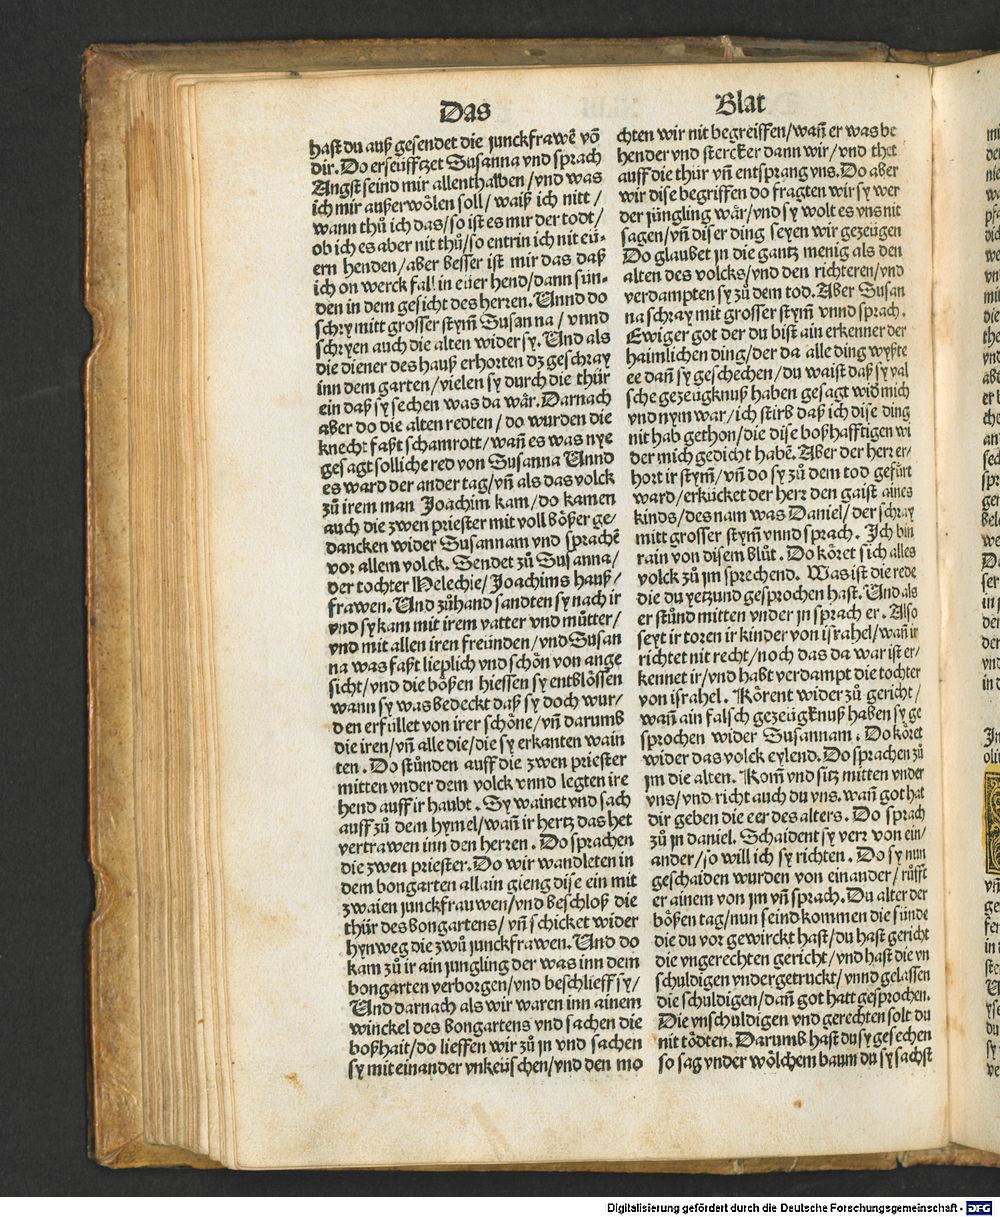 Das
Blat
hast du auß gesendet die junckfrawē võ
dir. Do erseüfftzet Susanna vnd sprach
Angst seind mir allenthalben / vnd was
ich mir außerwölen soll / waiß ich nitt /
wann thů ich das / so ist es mir der todt /
ob ich es aber nit thů / so entrin ich nit eü-
ern henden / aber besser ist mir das daß
ich on werck fall in eüer hend / dann sün-
den in dem gesicht des herren. Unnd do
schry mitt grosser stym̃ Susanna / vnnd
schryen auch die alten wider sy. Und als
die diener des hauß erhorten dz geschray
inn dem garten / vielen sy durch die thür
ein daß sy sechen was da wår. Darnach
aber do die alten redten / do wurden die
knecht faßt schamrott / wañ es was nye
gesagt solliche red von Susanna Unnd
es ward der ander tag / vñ als das volck
zů irem man Joachim kam / do kamen
auch die zwen priester mit voll bößer ge-
dancken wider Susannam vnd sprachē
vor allem volck. Sendet zů Susanna /
der tochter Helechie / Joachims hauß /
frawen. Und zůhand sandten sy nach ir
vnd sy kam mit irem vatter vnd můtter /
vnd mit allen iren freünden / vnd Susan
na was faßt lieplich vnd schön von ange
sicht / vnd die bößen hiessen sy entblössen
wann sy was bedeckt daß sy doch wur-
den erfüllet von irer schöne / vñ darumb
die iren / vñ alle die / die sy erkanten wain
ten. Do stůnden auff die zwen priester
mitten vnder dem volck vnnd legten ire
hend auff ir haubt. Sy wainet vnd sach
auff zů dem hymel / wañ ir hertz das het
vertrawen inn den herren. Do sprachen
die zwen priester. Do wir wandleten in
dem bongarten allain gieng dise ein mit
zwaien junckfrauwen / vnd beschloß die
thür des bongartens / vñ schicket wider
hynweg die zwů junckfrawen. Und do
kam zů ir ain jungling der was inn dem
bongarten verborgen / vnd beschlieff sy /
Und darnach als wir waren inn ainem
winckel des bongartens vnd sachen die
boßhait / do lieffen wir zů jn vnd sachen
sy mit einander vnkeüschen / vnd den mo
chten wir nit begreiffen / wañ er was be
hender vnd stercker dann wir / vnd thet
auff die thür vñ entsprang vns. Do aber
wir dise begriffen do fragten wir sy wer
der jüngling wår / vnd sy wolt es vns nit
sagen / vñ diser ding seyen wir gezeügen
Do glaubet jn die gantz menig als den
alten des volcks / vnd den richteren / vnd
verdampten sy zů dem tod. Aber Susan
na schray mit grosser stym̃ vnnd sprach.
Ewiger got der du bist ain erkenner der
haimlichen ding / der da alle ding wyßte
ee dañ sy geschechen / du waist daß sy val
sche gezeügknuß haben gesagt wid̃ mich
vnd nym war / ich stirb daß ich dise ding
nit hab gethon / die dise boßhafftigen wi
der mich gedicht habē. Aber der herr er-
hort ir stym̃ / vñ do sy zů dem tod gefürt
ward / erkücket der herr den gaist aines
kinds / des nam was Daniel / der schray
mitt grosser stym̃ vnnd sprach. Ich bin
rain von disem blůt. Do köret sich alles
volck zů jm sprechend. Was ist die rede
die du yetzund gesprochen hast. Und als
er stůnd mitten vnder jn sprach er. Also
seyt ir toren ir kinder von israhel / wañ ir
richtet nit recht / noch das da war ist er /
kennet ir / vnd habt verdampt die tochter
von israhel. Körent wider zů gericht /
wañ ain falsch gezeügknuß haben sy ge
sprochen wider Susannam. Do köret
wider das volck eylend. Do sprachen zů
jm die alten. Kom̃ vnd sitz mitten vnder
vns / vnd richt auch du vns. wañ got hat
dir geben die eer des alters. Do sprach
zů jn daniel. Schaident sy verr von ein /
ander / so will ich sy richten. Do sy nun
geschaiden wurden von einander / růfft
er ainem von jm vñ sprach. Du alter der
bößen tag / nun seind kommen die sünde
die du vor gewirckt hast / du hast gericht
die vngerechten gericht / vnd hast die vn
schuldigen vndergetruckt / vnnd gelassen
die schuldigen / dañ got hatt gesprochen.
Die vnschuldigen vnd gerechten solt du
nit tödten. Darumb hast du sy gesechen
so sag vnder wölchem baum du sy sachst
Digitalisierung gefördert durch die Deutsche Forschungsgemeinschaft - DFG